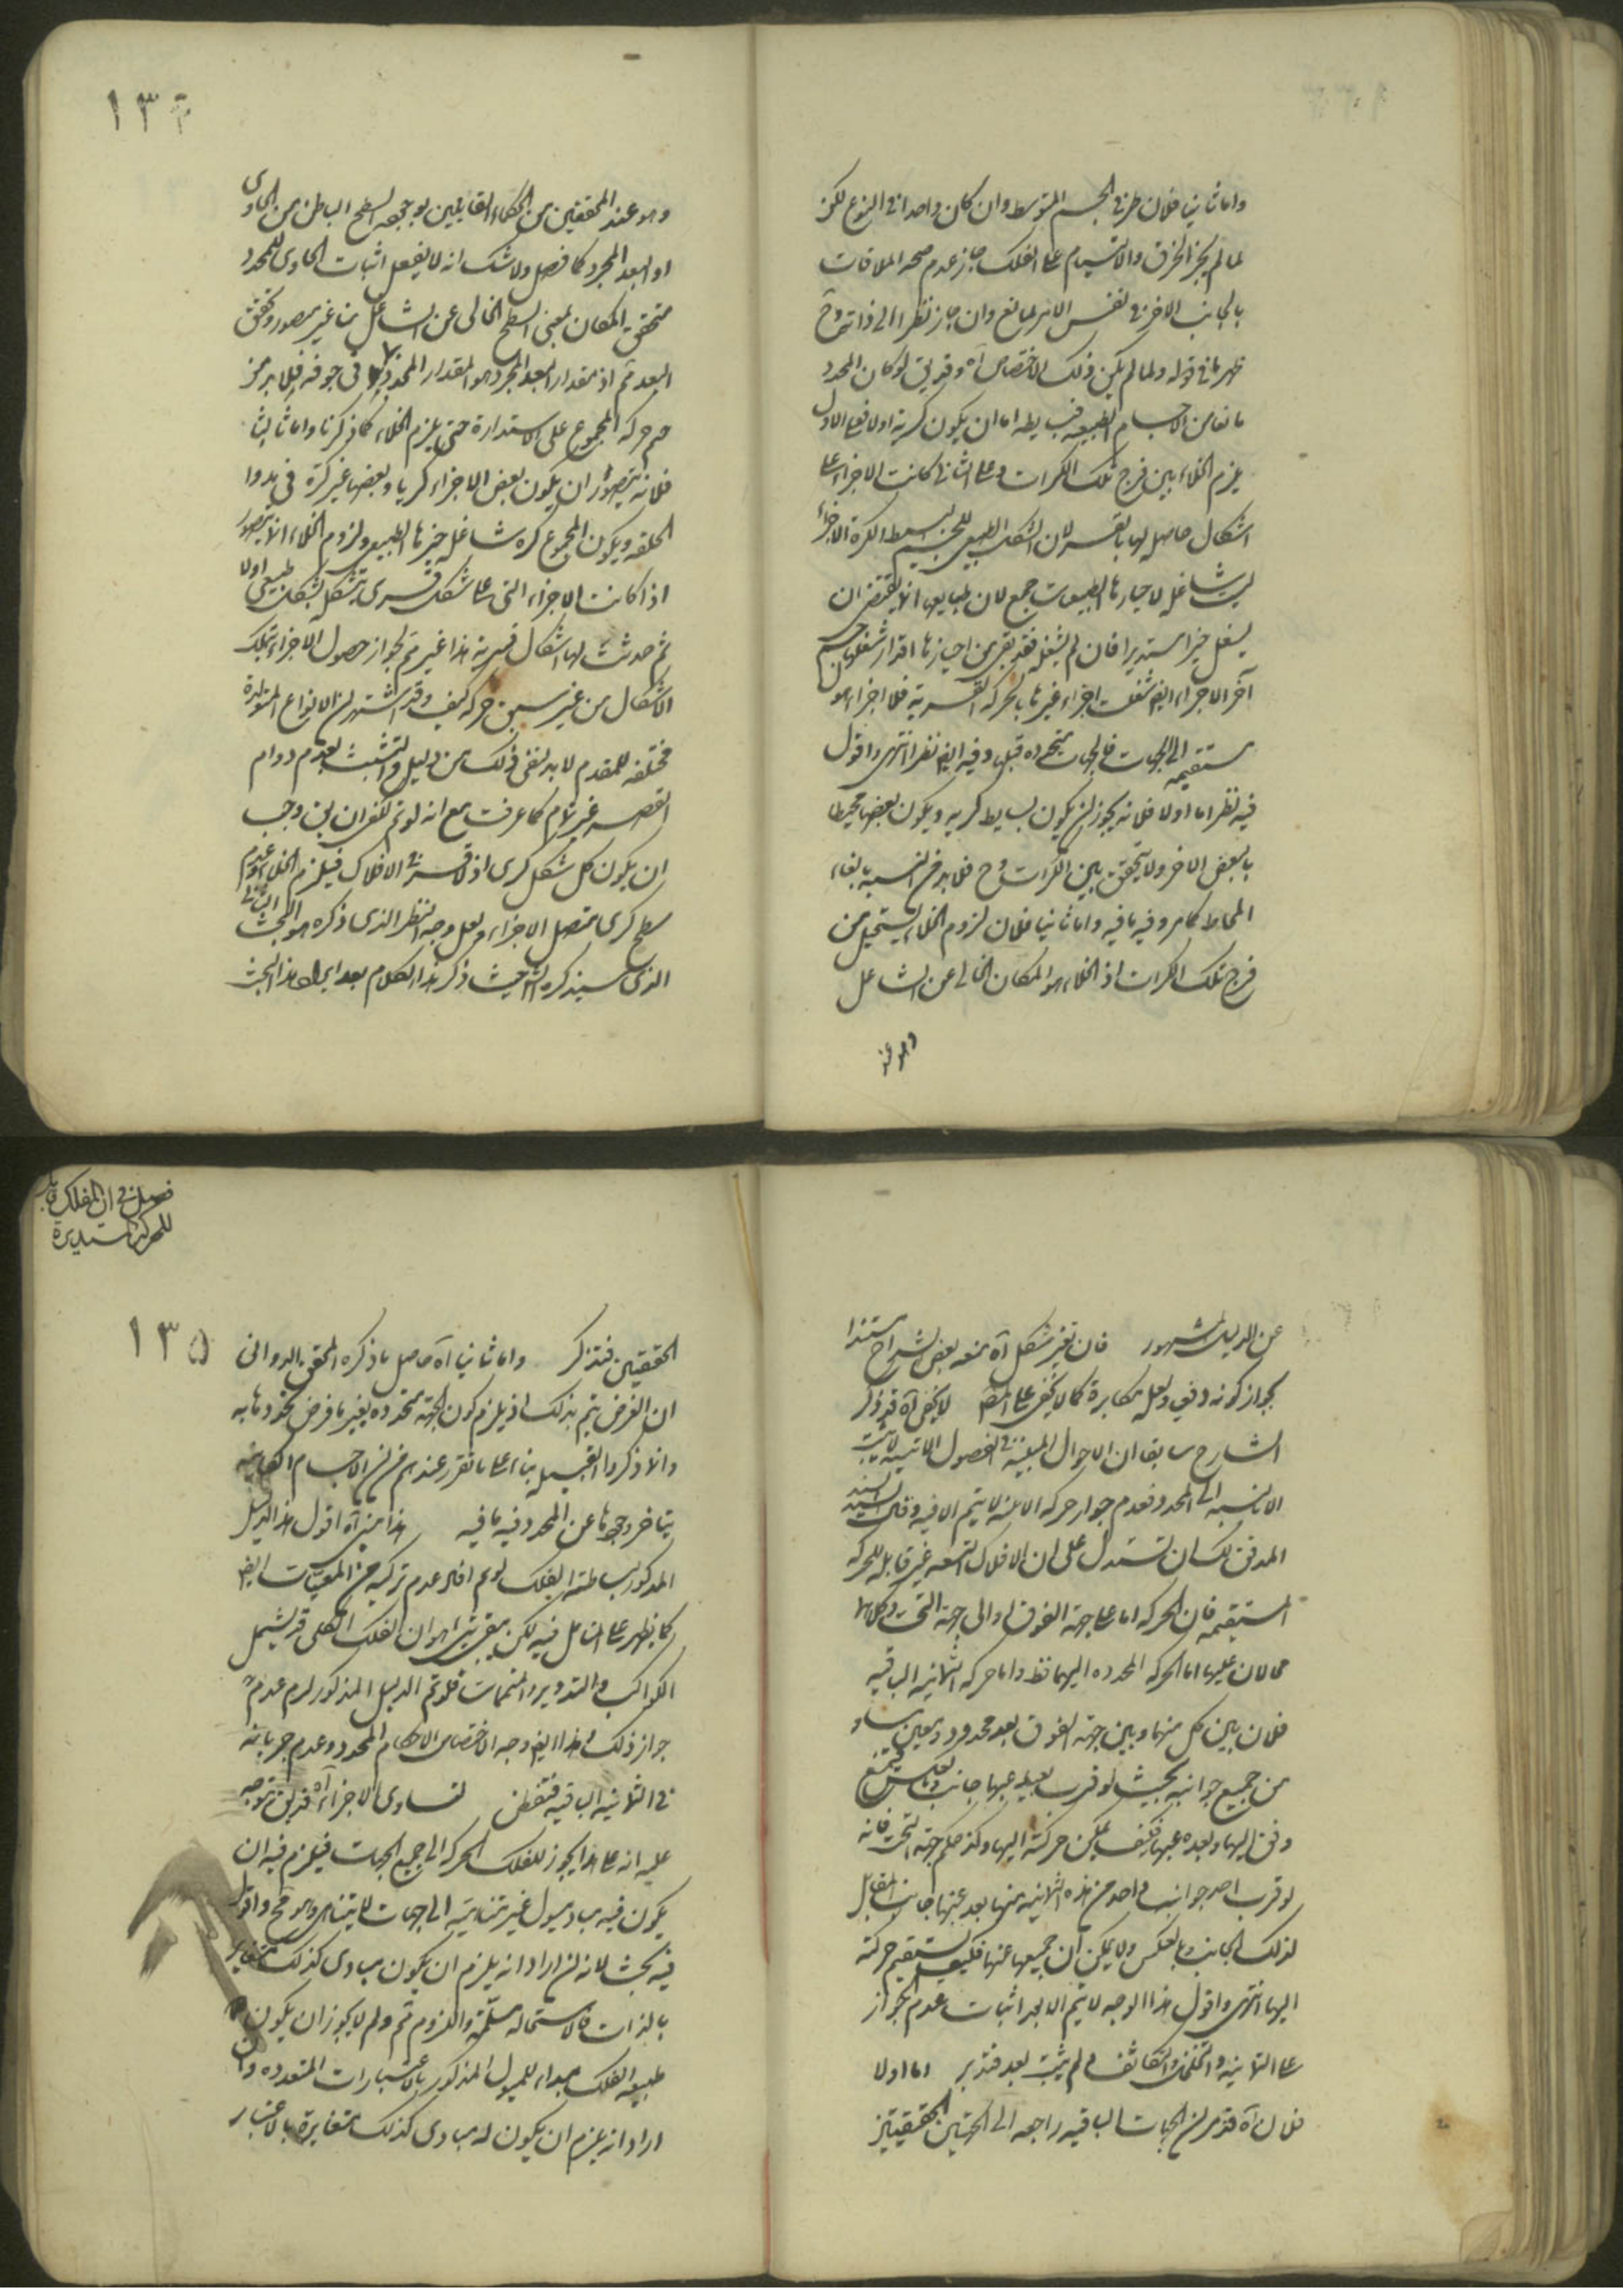 واما ثانيا فلان طرفى الجسم المتوسط وان كان واحدا فى النوع لكن
لما لم يجز الخرق والالتيام على الفلك جاز عدم صحة الملاقات
بالجانب الاخر فى نفس الامر لمانع وان جاز نظرا الى ذاته وح
ظهر ما فى قوله ولما لم يكن ذلك الاختصاص آه وقد يق لو كان المحدد
مانعا من الاجسام الطبيعية فبسايطه اما ان يكون كرية اولا فعلى الاول
يلزم الخلاء بين فرج تلك الكرات وعلى الثانى كانت الاجزاء على
اشكال حاصلة لها بالقسر لان الشكل الطبيعى للجسم البسيط الكرة الاجزاء
ليست شاغلة لاحيازها الطبيعية جمع لان طبايعها انما يقتضى ان
يشغل حيزا مستديرا فان لم يشغله فقد بقى من احيازها اقدار شغلها جسم
آخر الاجزاء ايض شغلت اجزاء غيرها بالحركة القسرية فلاجزاءه
مستقيمة الى الجهات فالجهات متحددة قبلها وفيه ايض نظر انتهى واقول
فيه نظر اما اولا فلانه يجوز ان يكون بسايطه كرية ويكون بعضها محيطا
بالبعض الاخر ولا يتحقق بين الكرات فرج فلا بد من التشبث بنفاء
المحاط كما مر وفيه ما فيه واما ثانيا فلان لزوم الخلاء يستحيل من
فرج تلك الكرات اذ الخلاء هو المكان الخالى عن الشاغل
وهو عند
١٣٤
وهو عند المحققين من الحكماء القائلين بوجوده السطح الباطن من الحاوى
او البعد المجرد كما فصل ولا شك انه لا يفعل اثبات الحاوى للمحدد
متحقق المكان بمعنى السطح الخالى عن الشاغل هنا غير متصور وتحقق
البعد ثم اذ مقدار البعد المجرد هو المقدار المحدد فى جوفه فلا بد من
حركة المجموع على الاستدارة حتى يلزم الخلاء كما ذكرنا واما ثالثا
فلانه يتصور ان يكون بعض الاجزاء كريا وبعضها غير كرة فى بدو
الخلقة ويكون المجموع كرة شاغلة حيزها الطبيعى ولزوم الخلاء انما يتصور
اذا كانت الاجزاء التى على شكل قسرى متشكلة بشكل طبيعى اولا
ثم حدثت لها اشكال قسرية هذا غير ثم لجواز حصول الاجزاء بتلك
الاشكال من غير سبق حركة كيف وقد اشتهر ان الانواع المتولدة
مختلفة للمقدم لا بد لنفى ذلك من دليل والتشبث بعدم دوام
القسر غير تام كما عرفت مع انه لو تم لكفى ان يق وجب
ان يكون كل شكل كرى اذ لا قسر فى الافلاك فيلزم الخلاء وعدم
سطح كرى متصل الاجزاء ولعل وجه النظر الذى ذكره هو البحث الثانى
الذى سيذكره الش حيث ذكر هذا الكلام بعد ايراد هذا البحث
عن الدليل المشهور فان تغير شكل آه منعه بعض الشراح مستندا
بجواز كونه دفعى ولعله مكابرة كما لا يخفى على المنصف لا يخفى آه قد ذكر
الشارح سابقا ان الاحوال المبينة فى الفصول الاتية لا تثبت
الا بالنسبة الى المحدد فعدم جواز حركة الاينية لا يتم الا فيه وقال السيد السند
المدقق لك ان تستدل على ان الافلاك التسعة غير قابلة للحركة
المستقيمة فان الحركة اما على جهة الفوق او الى جهة التحت وكلاهما
محالان عليها اما الحركة المحدد اليهما فظ واما حركة الثمانية الباقية
فلان بين كل منها وبين جهة الفوق بعد محدود معين مساو
من جميع جوانبه بحيث لو قرب بعضه عنها جانب وبالعكس فيمتنع
دفق اليها وبعده عنها فكيف يمكن حركته اليها وكذا حكم جهة التحت فانه
لو قرب احد جوانب واحد من هذه الثمانية منها بعد عنها جانب المقابل
لذلك الجانب وبالعكس ولا يمكن ان جميعها عنها فكيف يستقيم حركته
اليها انتهى واقول هذا الوجه لا يتم الا بعد اثبات عدم الجواز
على الثمانية والتخلخل والتكاثف ولم يثبت بعد فتدبر اما اولا
فلان آه قد مر ان الجهات الباقية راجعة الى الجهتين الحقيقيتين
فصل فى ان الفلك قابل
للحركة المستديرة
١٣٥
الحقيقتين فتذكر واما ثانيا آه حاصل ما ذكره المحقق الدوانى
ان الغرض يتم بذلك اذ يلزم كون الجهة متحددة بغير ما فرض تحددها به
وانما ذكروا القبيل بناء على ما تقرر عندهم من ان الاجسام الكائنة
يتاخر وجودها عن المحدد وفيه ما فيه هذا مبنى آه اقول هذا الدليل
المذكور بساطة الفلك لو تم افاد عدم تركبه من المقسمات ايض
كما يظهر على المتامل فيه لكن بقى شئ هو ان الفلك الكلى قد يشتمل
الكواكب والتدوير والمتممات فلو تم الدليل المذكور لزم عدم
جواز ذلك وهذا ايض وجه الاختصاص الاحكام المحدد وعدم جريانه
فى الثمانية الباقية فتفطن لتساوى الاجزاء آه قد يق توجه
عليه انه على هذا يجوز للفلك الحركة الى جميع الجهات فيلزم فيه ان
يكون فيه مبادى ميول غير متناهية الى جهات لا يتناهى وهو مح واقول
فيه بحث لانه ان اراد انه يلزم ان يكون مبادى كذلك متغايرة
بالذات فالاستحالة مسلمة واللزوم ثم ولم لا يجوز ان يكون
طبيعة الفلك مبداء للميول المذكور بالاعتبارات المتعددة وان
اراد انه يلزم ان يكون له مبادى كذلك متغايرة بالاعتبار